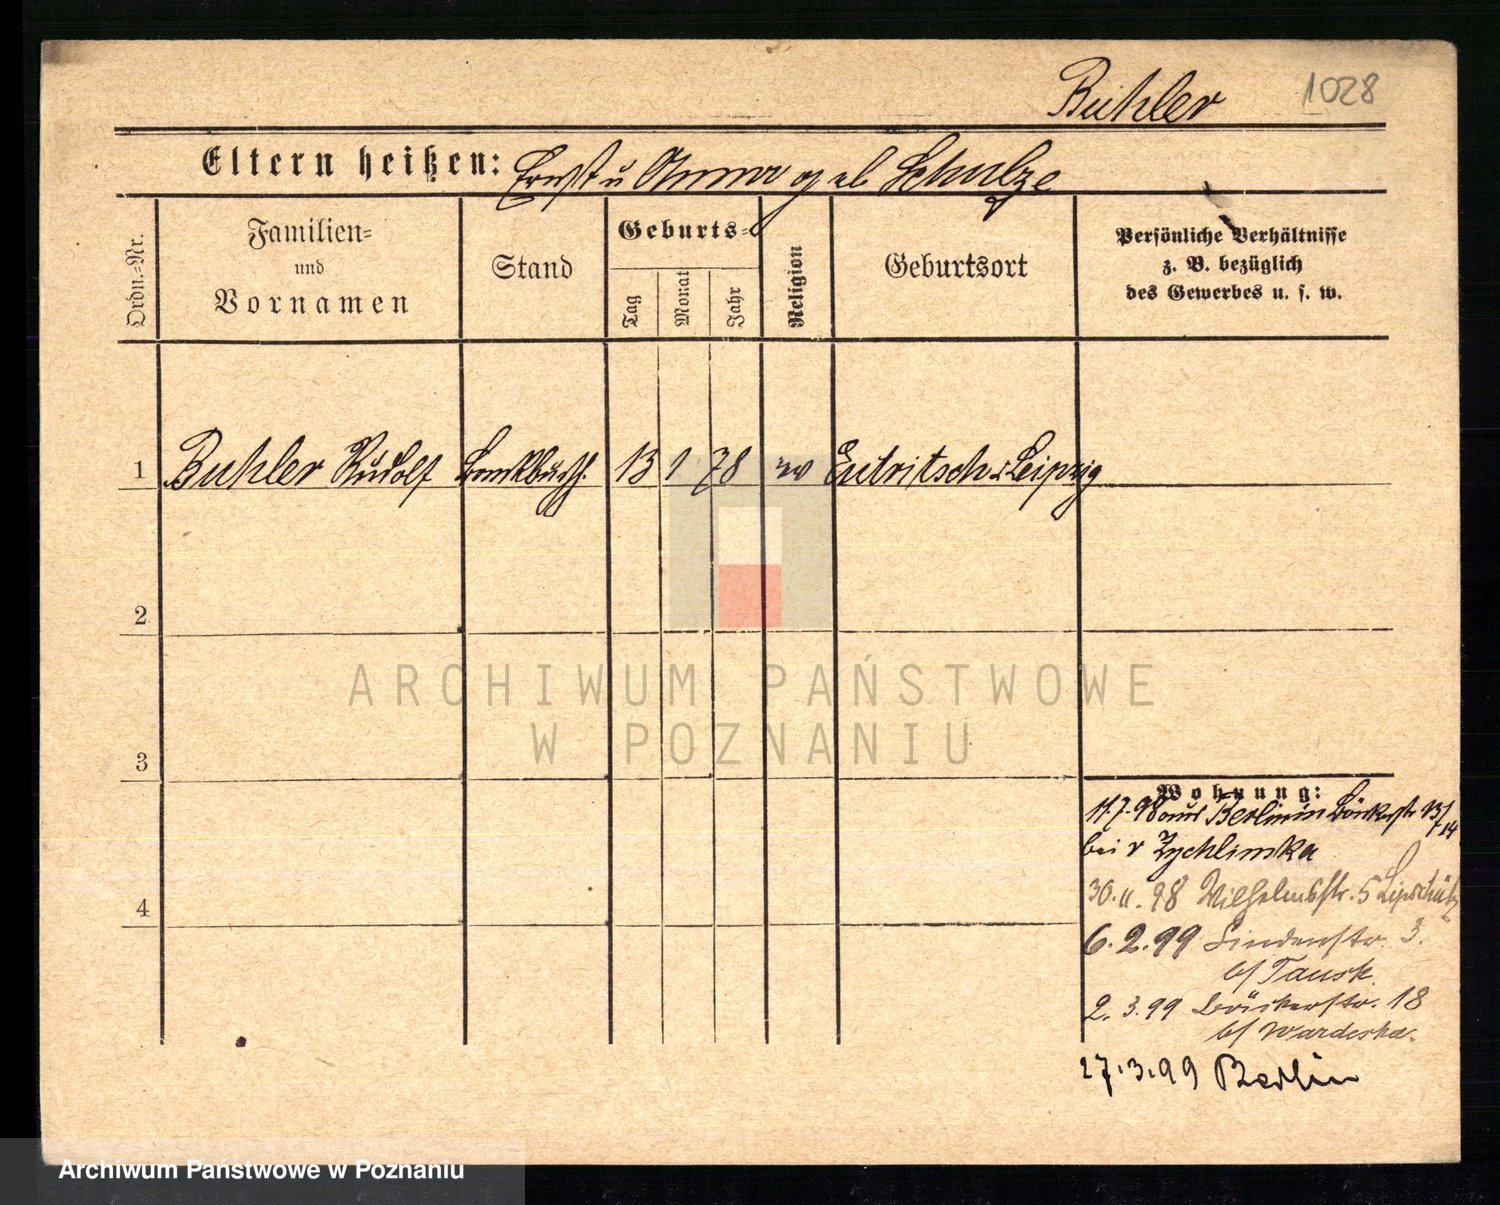 Buhler 1028
Eltern heißen: Ernst u Anna geb Schulze
Ordn.-Nr.
Familien-
und
Vornamen
Stand
Geburts-
Tag
Monat
Jahr
Religion
Geburtsort
Persönliche Verhältnisse
z. B. bezüglich
des Gewerbes u. s. w.
1 Buhler Rudolf 13 1 78 ev Eutritsch Leipzig
2
3
4
Wohnung:
11.7.98 aus Berlin in Bäckerstr 13/14
bei v Zychlinska
30.11.98 Wilhelmstr. 5 Lipschütz
6.2.99 Lindenstr. 3.
b/ Tausk.
2.3.99 Bäckerstr. 18
b/ Wardeska.
27.3.99 Berlin
ARCHIWUM PAŃSTWOWE
W POZNANIU
Archiwum Państwowe w Poznaniu